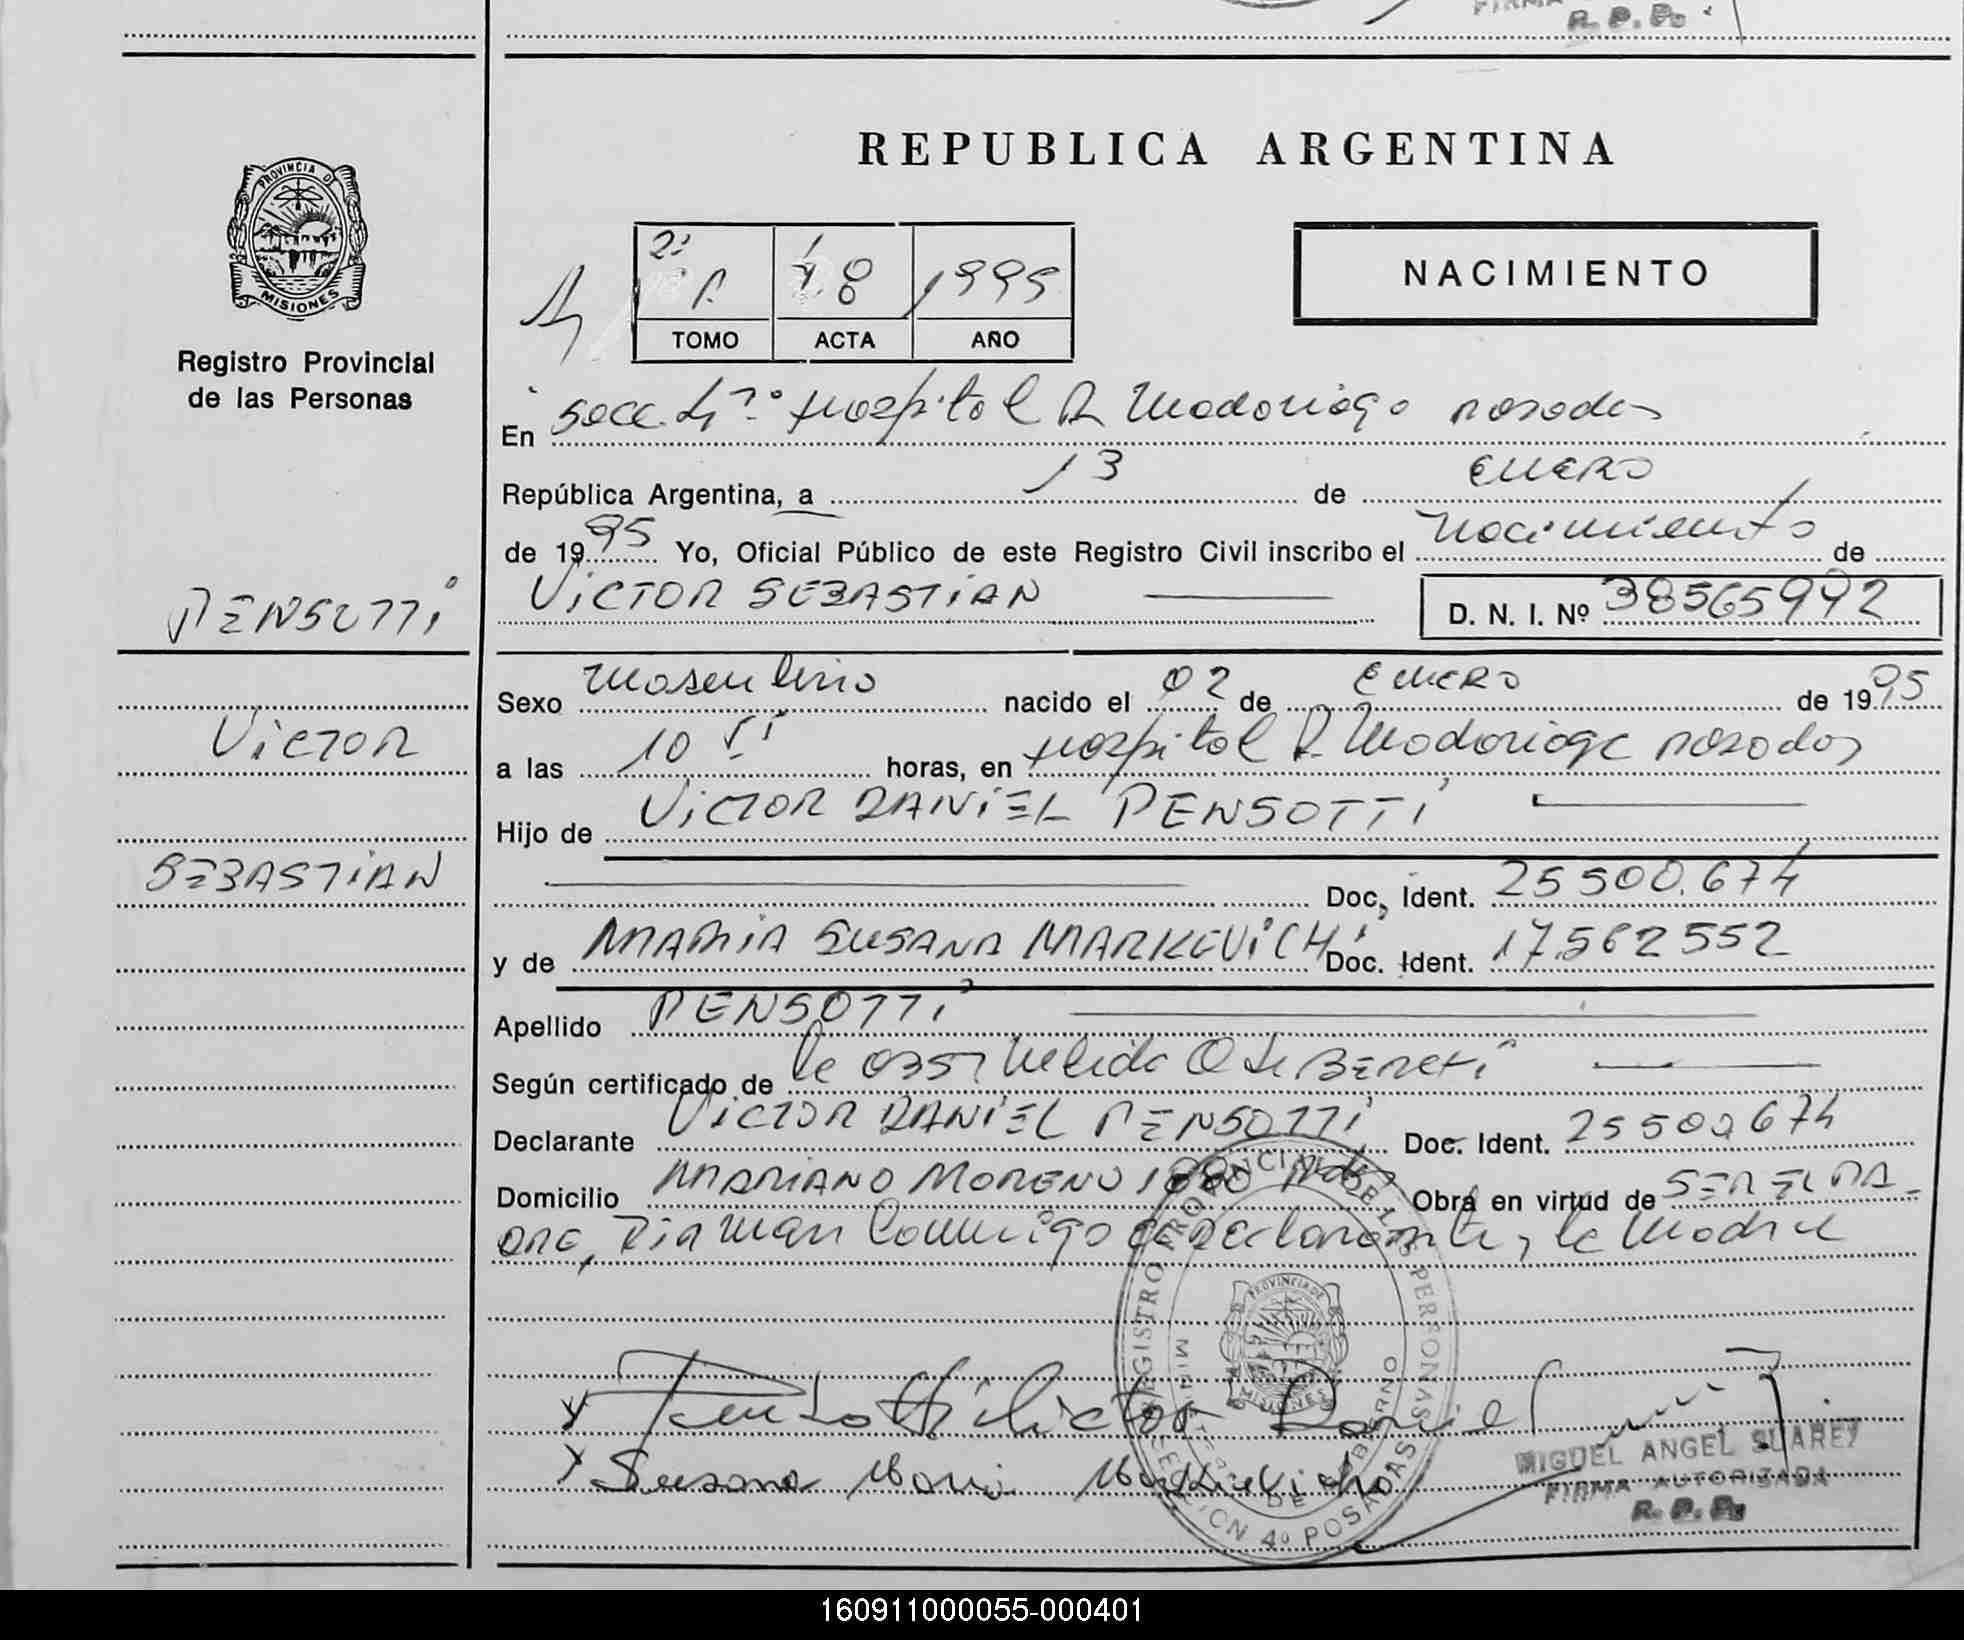 FIRMA
R. P. P.
REPUBLICA ARGENTINA
PROVINCIA DE
MISIONES
Registro Provincial
de las Personas
NACIMIENTO
2º
A 18 1995
TOMO ACTA AÑO
En Secc. 4º Hospital R Madariaga Posadas
República Argentina, a 13 de enero
de 1995 Yo, Oficial Público de este Registro Civil inscribo el nacimiento de
VICTOR SEBASTIAN D. N. I. Nº 38565992
PENSOTTI
Sexo masculino nacido el 02 de enero de 1995
VICTOR
a las 10 horas, en Hospital R. Madariaga Posadas
Hijo de VICTOR DANIEL PENSOTTI
SEBASTIAN
Doc. Ident. 25500.674
y de MARIA SUSANA MARKEVICH Doc. Ident. 17.562552
Apellido PENSOTTI
Según certificado de la obst Nelida
Declarante VICTOR DANIEL PENSOTTI Doc. Ident. 25500674
Domicilio MARIANO MORENO Obra en virtud de SER EL PA-
DRE, Firman conmigo el declarante, la madre
Pensotti Victor Daniel
Susana Maria Markievich
REGISTRO PROVINCIAL DE LAS PERSONAS
MINISTERIO DE GOBIERNO
PROVINCIA DE
MISIONES
SECCION 4º POSADAS
MIGUEL ANGEL SUAREZ
FIRMA AUTORIZADA
R. P. P.
160911000055-000401